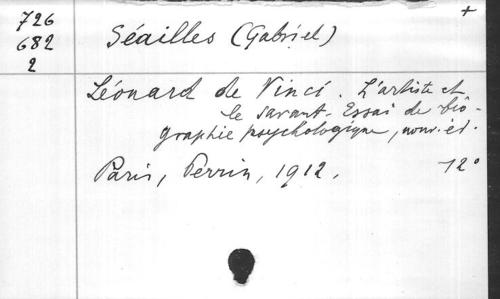 +
726
682
2
Séailles (Gabriel)
Léonard de Vinci. L'artiste et
le savant. Essai de bio-
graphie psychologique, nouv. éd.
Paris, Perrin, 1912. 12°